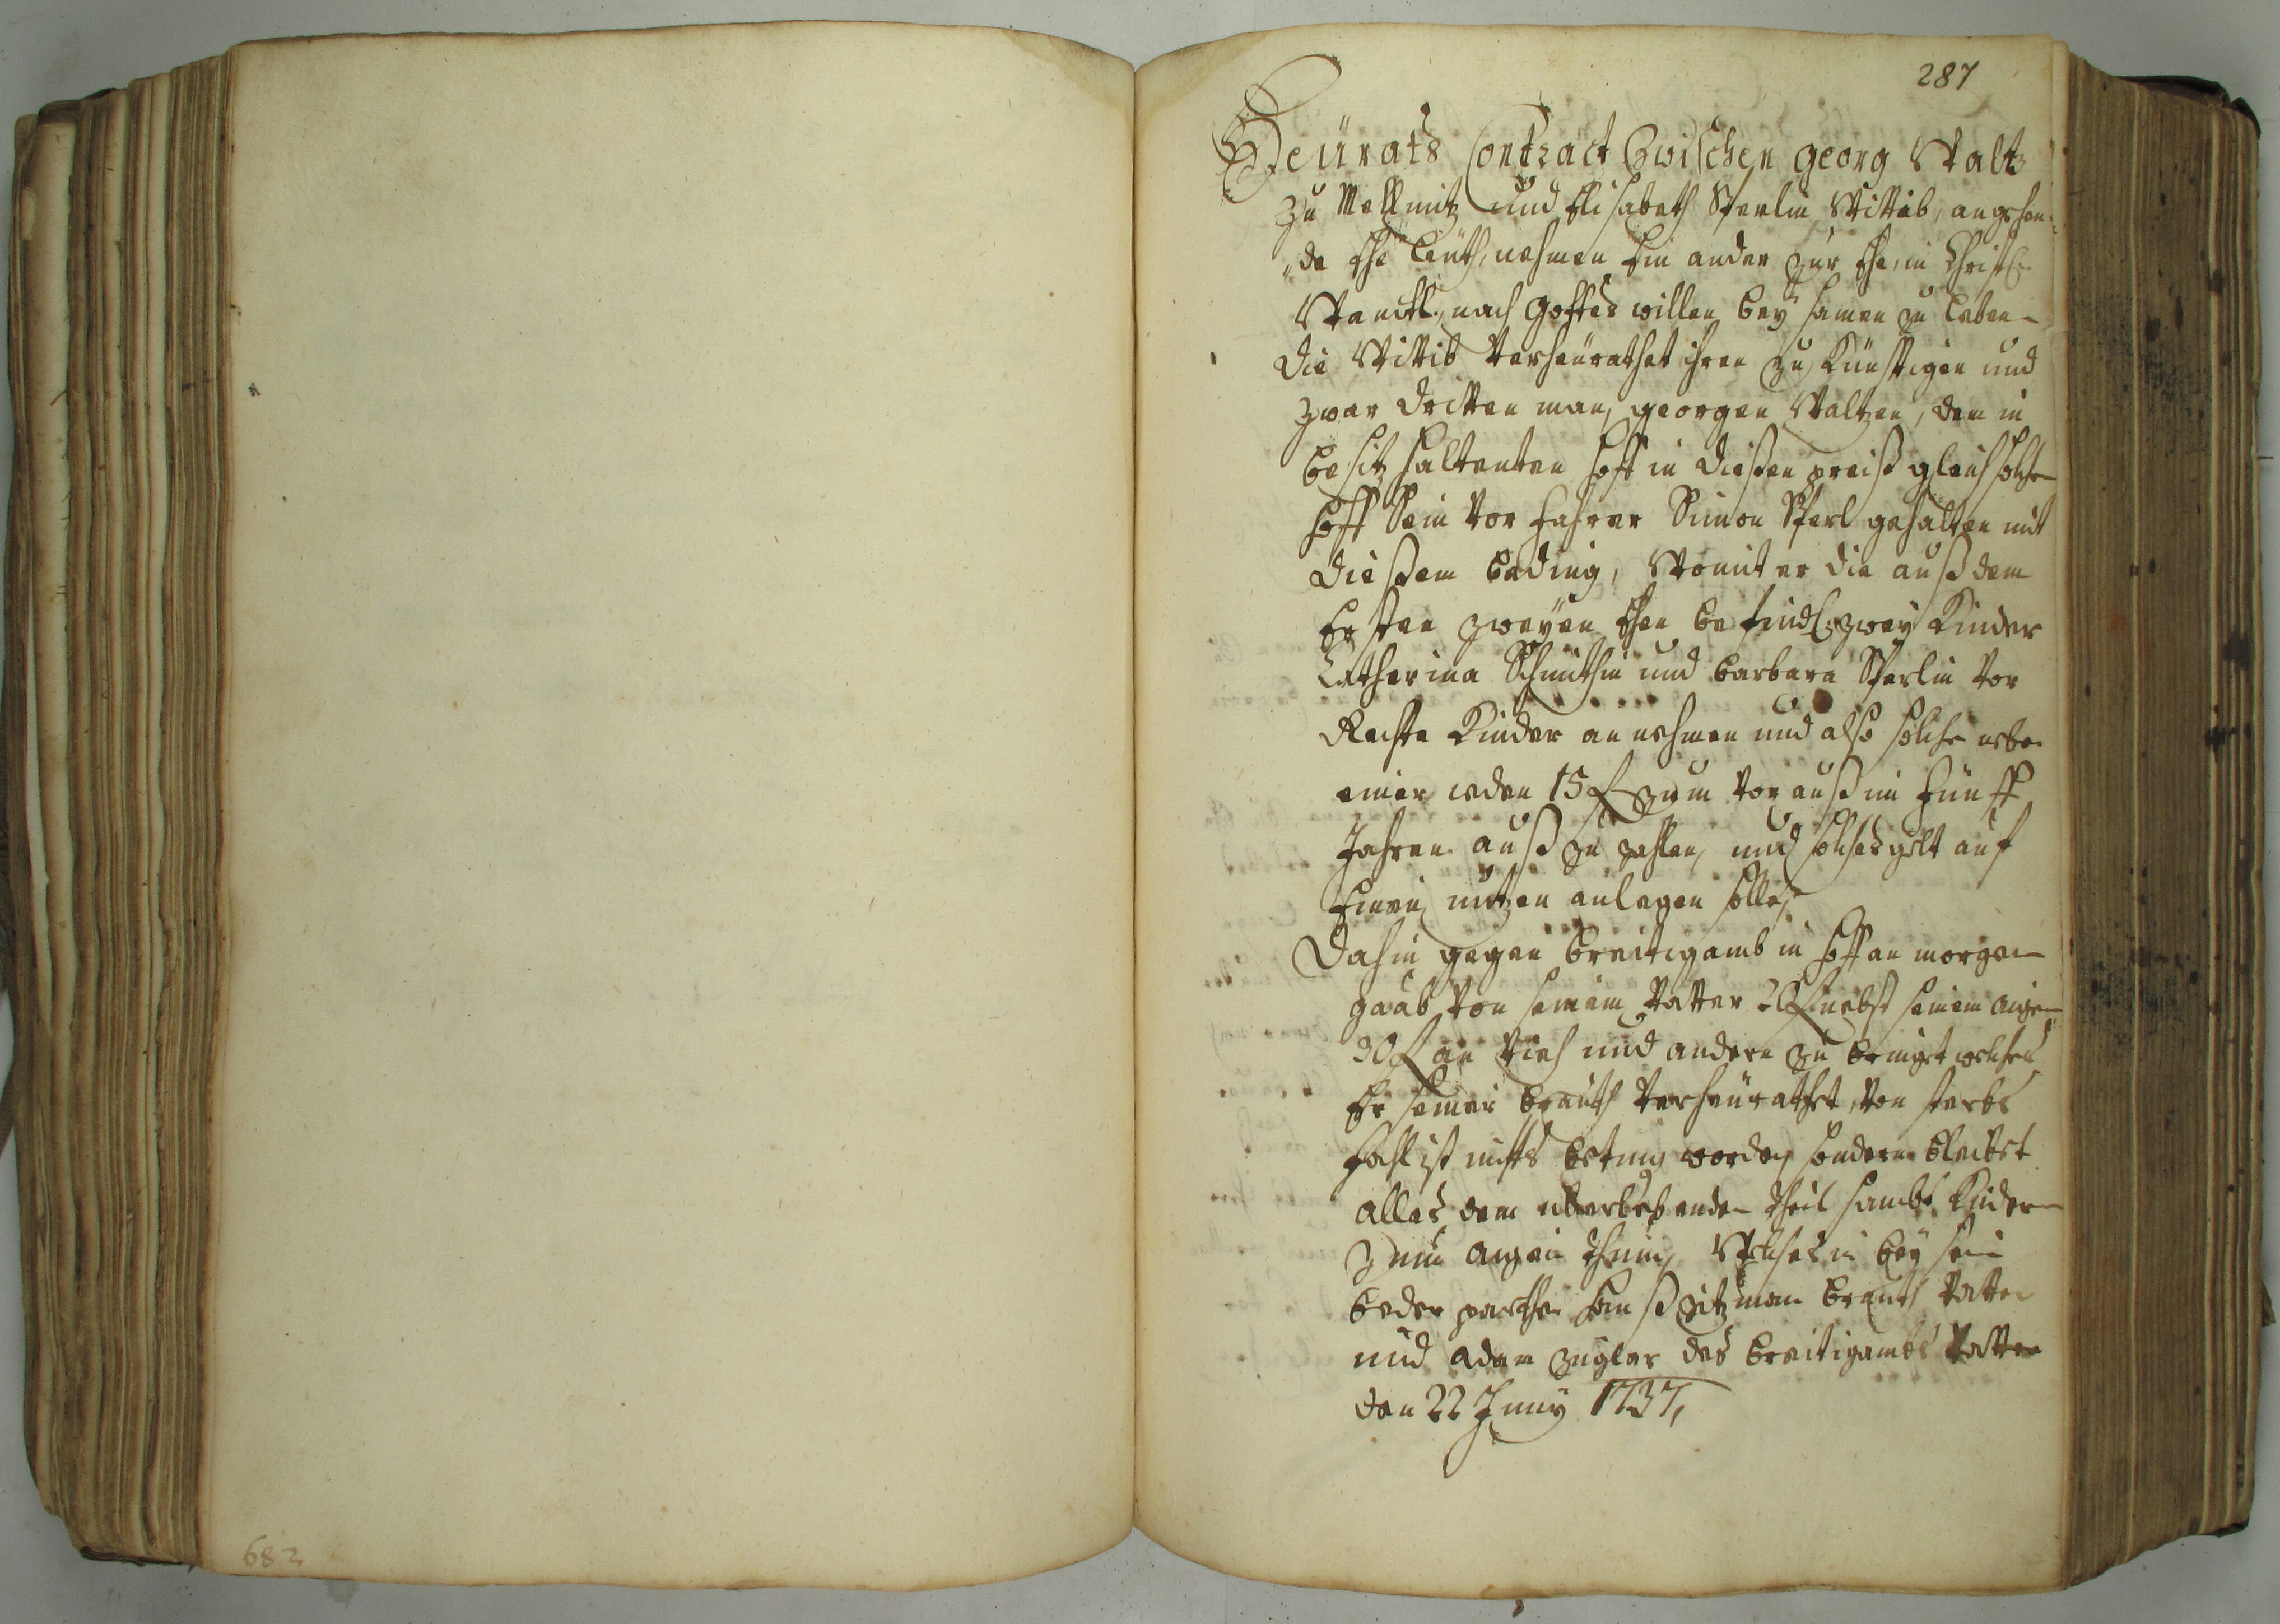 287
Heürats Contract Zwischen georg Waltz
zu Mellnitz und Elisabeth Sterlin Wittib, angehen-
„de Ehe Leüth, nehmen Ein ander zur Ehe, in Christl.
Wandl, nach Gottes willen beÿ samen zu Leben
Die Wittib verheürathet ihren zu Künfftigen und
zwar dritten man, georgen Waltzen, den in
besitz haltenten hoff in diesen preiß gleich solche
hoff Sein vor fahrer Simon Sterl gehalten mit
dießem beding, Womit er die auß dem
Ersten zweÿen Ehen befindl. zweÿ Kinder
Catherina Schmithin und barbara Sterlin vor
Rechte Kinder an nehmen und also solche
einer ieden 15 f zum vorauß in fünff
Jahren auß zu zahlen, und solches gelt auf
Ihren nutzen anlegen solle,
Dahin gegen breitigamb in hoff an morgen
gaab von seinem vatter f nebst seinem aigen
30 f an Vieh und andern zu bringet welches
Er seiner brauth verheürathet, von sterbs
fahl ist nichts betung worden sondern bleibet
alles dem überlebenden theil sambt Kindern
zum aigen thum, Welches in beÿ sein
beder parthen Hanß Zitzman brauth vatter
und adam zugler des breitigambs vatter
den 22 Junÿ 1737,
682